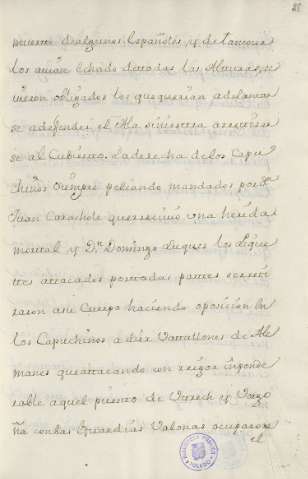 muerete de algunos Españoles y de tambores
los avian echado de todas las Alturas, se
vieron obligados los que querian adelantar
se a defender el Ala siniestra a retirar
se al Cubierto. La derecha de los Capu
chinos siempre peleando mandados por Dn
Juan Carachole que recivio una herida
mortal y Dn Domingo duques los Pique
tes attacados por todas partes se reti
raron a su Cuerpo haciendo oposicion en
los Capuchinos a diez Vattallones de Ale
manes que attacando con rigor inponde
rable aquel puesto de Utrech y Borgo
ña con las Guardias Valonas ocuparon
el
BIBLIOTECA PUBLICA
TOLEDO